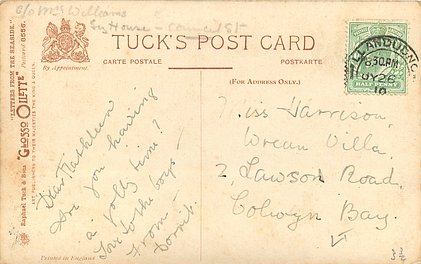 c/o Mrs Williams
House - 
TUCK'S POST CARD
CARTE POSTALE
POSTKARTE
By Appointment.
(FOR ADDRESS ONLY.)
"LETTERS FROM THE SEASIDE."
"GLOSSO OILETTE"
Raphael Tuck & Sons
ART PUBLISHERS TO THEIR MAJESTIES THE KING & QUEEN.
Printed in England
LLANDUDNO
8 30 PM
JY 26
10
HALF PENNY
Dear Kathleen
Are you having
a jolly time?
Love to the boys
From -
Miss Harrison,
Villa,
2, Lawson Road,
Colwyn Bay.